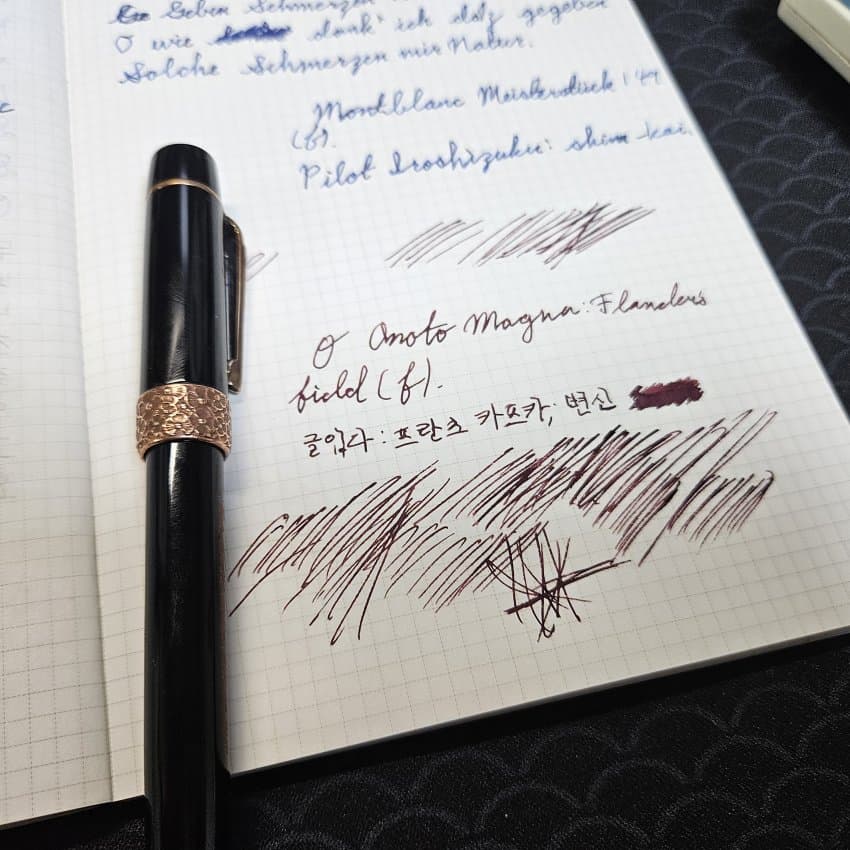 Geben Schmerzen
O wie dank' ich daß gegeben
Solche Schmerzen mir Natur.
Montblanc Meisterstück 149
(f).
Pilot Iroshizuku: shin-kai.
O Onoto Magna: Flanders
field (f).
글입다: 프란츠 카프카; 변신